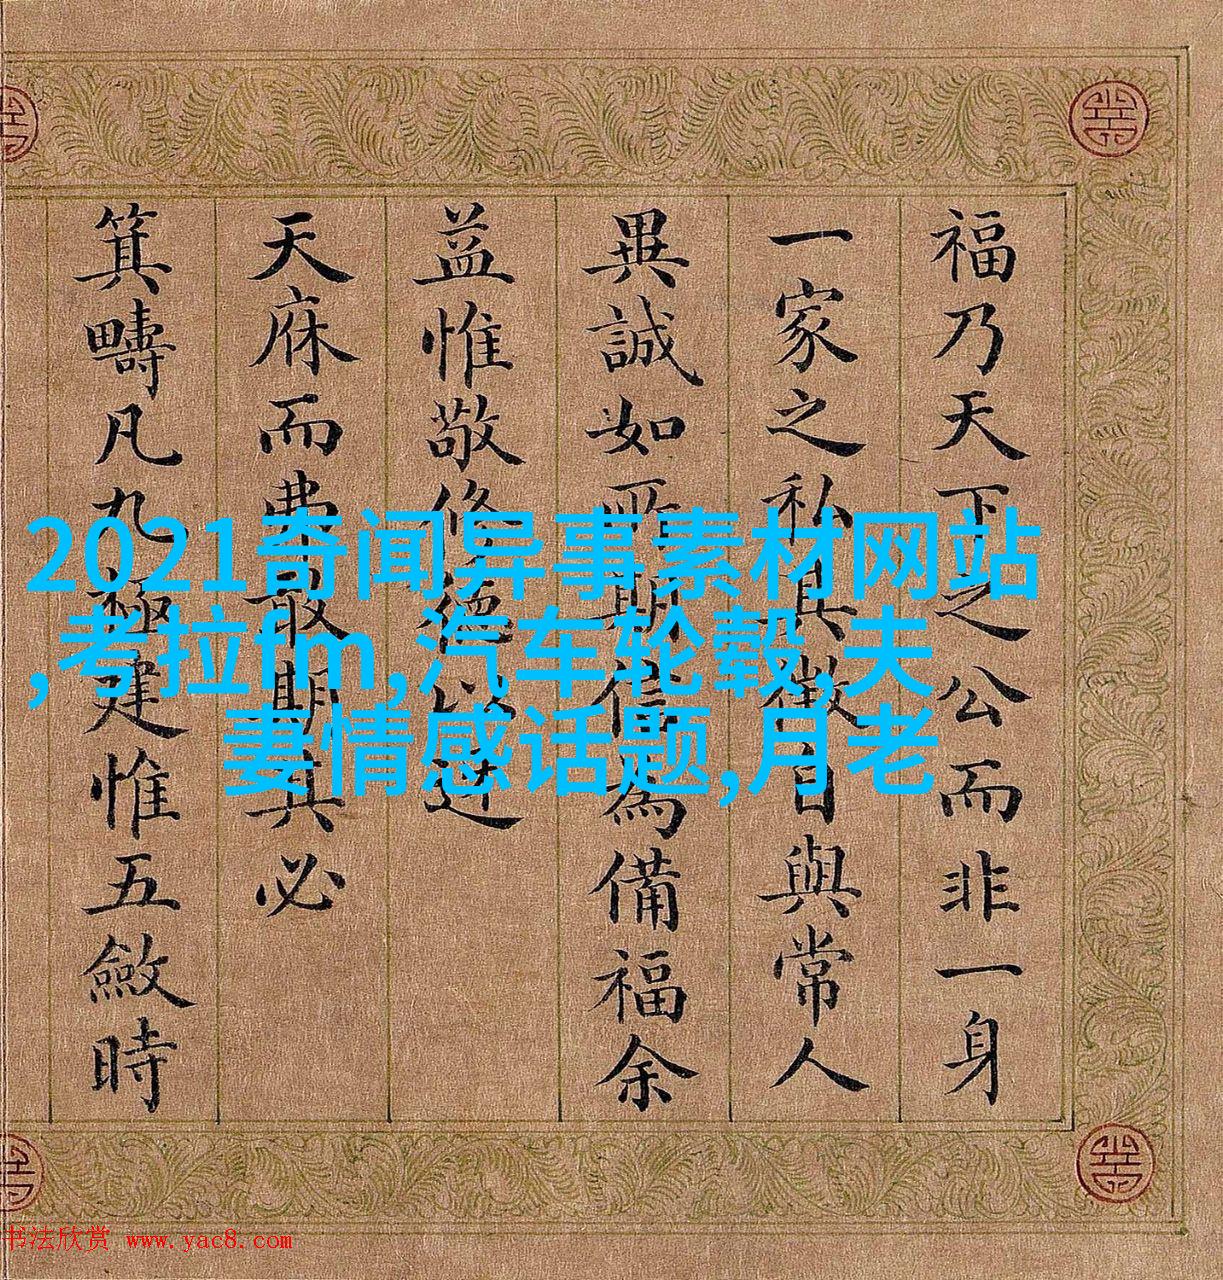 福乃天下之公而非一身
一家之私其徵自與常人
異誠如所期信為備福余
益惟敬修德以迓
天庥而弗敢期其必
箕疇凡九極建惟五斂時
2021奇闻异事素材网站
,考拉fm,汽车轮毂,夫
妻情感话题,月老
书法欣赏 www.yac8.com